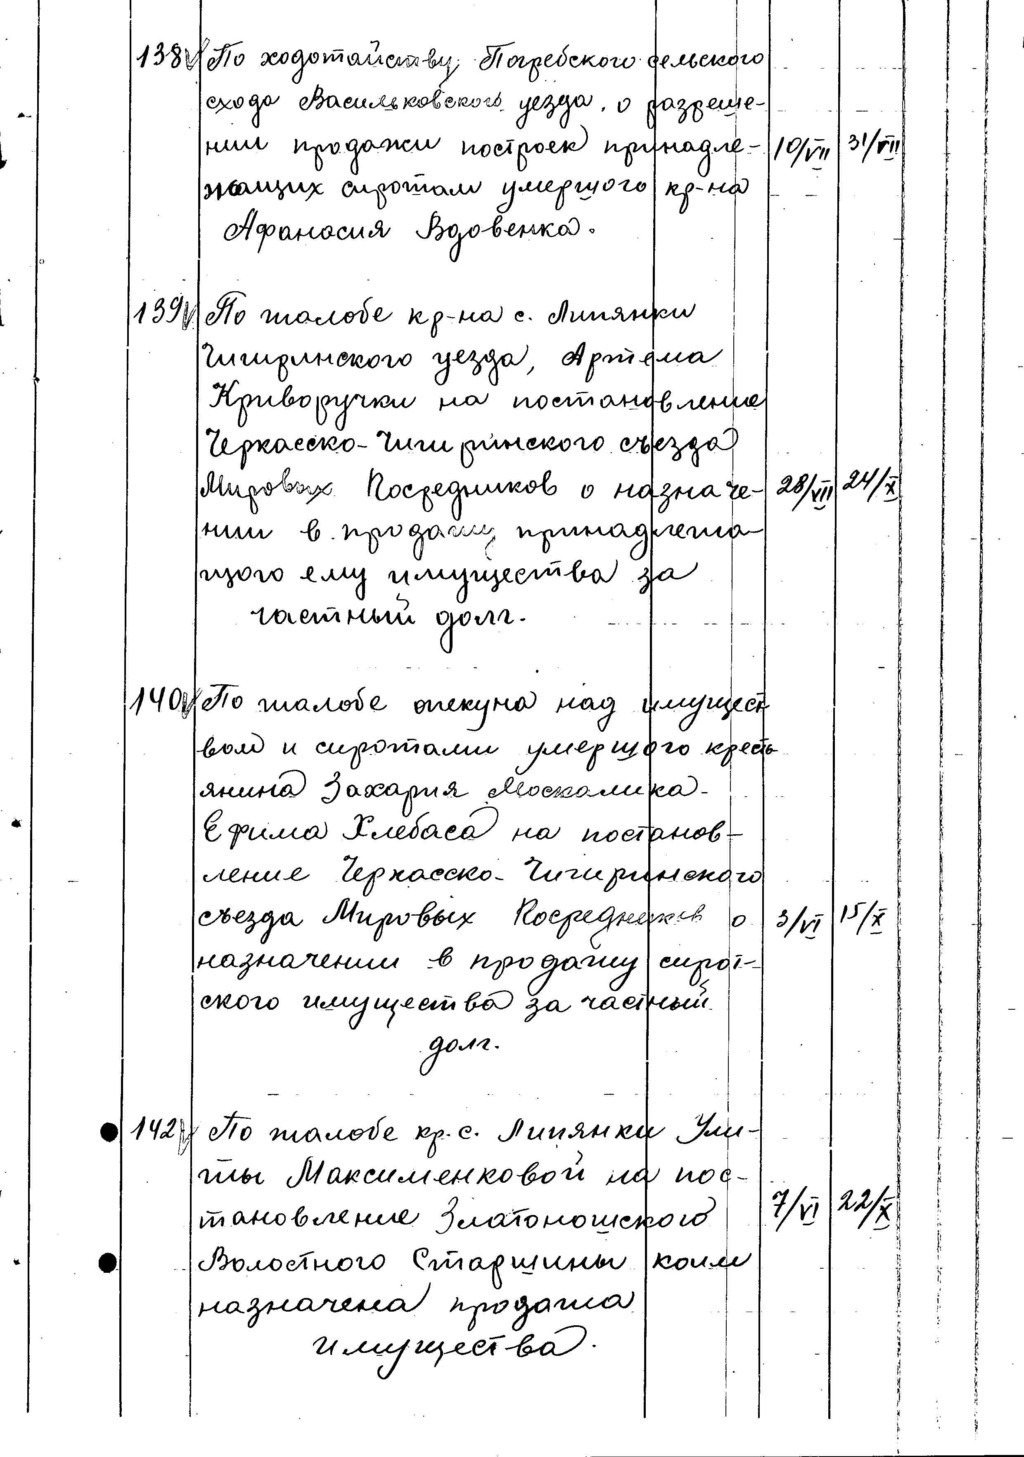 138 По ходотайству Погребского сельского
схода Васильковского уезда, о разреше-
нии продажи построек принадле- 10/VII 31/VII
жащих сиротам умершого кр-на
Афанасия Вдовенка.
139 По жалобе кр-на с. Липянки
Чигиринского уезда, Артема
Криворучки на постановление
Черкасско-Чигиринского съезда
Мировых Посредников о назначе- 28/VII 24/X
нии в продажу принадлежа-
щого ему имущества за
частный долг.
140 По жалобе опекуна над имущест
вом и сиротами умершого кресть
янина Захария Москалика-
Ефима Хлебаса на постанов-
ление Черкасско-Чигиринского
съезда Мировых Посредников о 3/VI 15/X
назначении в продажу сирот-
ского имущества за частный
долг.
142 По жалобе кр. с. Липянки Ули-
ты Максименковой на пос-
тановление Златоношского 7/VI 22/X
Волостного Старшины коим
назначена продажа
имущества.